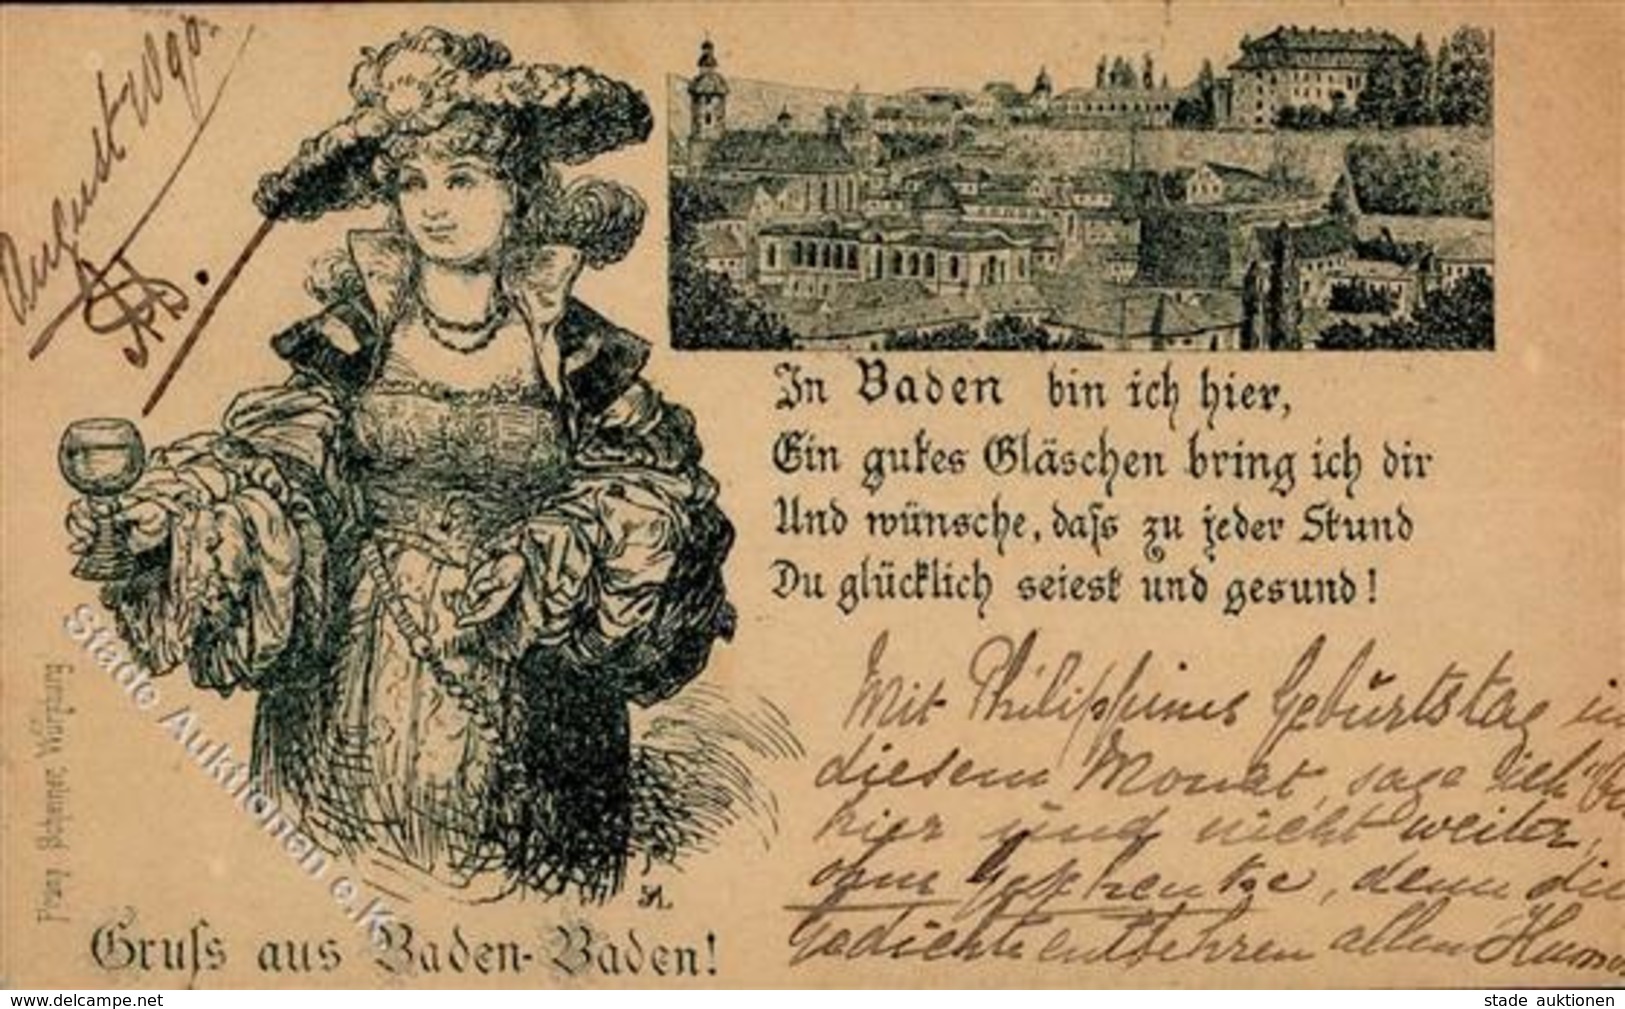 August 1890.
In Baden bin ich hier,
Ein gutes Gläschen bring ich dir
Und wünsche, dass zu jeder Stund
Du glücklich seiest und gesund!
Mit Philippines Geburtstag in
diesem Monat, sage dich
hier und nicht weiter,
denn die
Gedichte entbehren allen
Stade Auktionen e.K.
Scheiner, Würzburg
Gruss aus Baden-Baden!
www.delcampe.net
stade auktionen